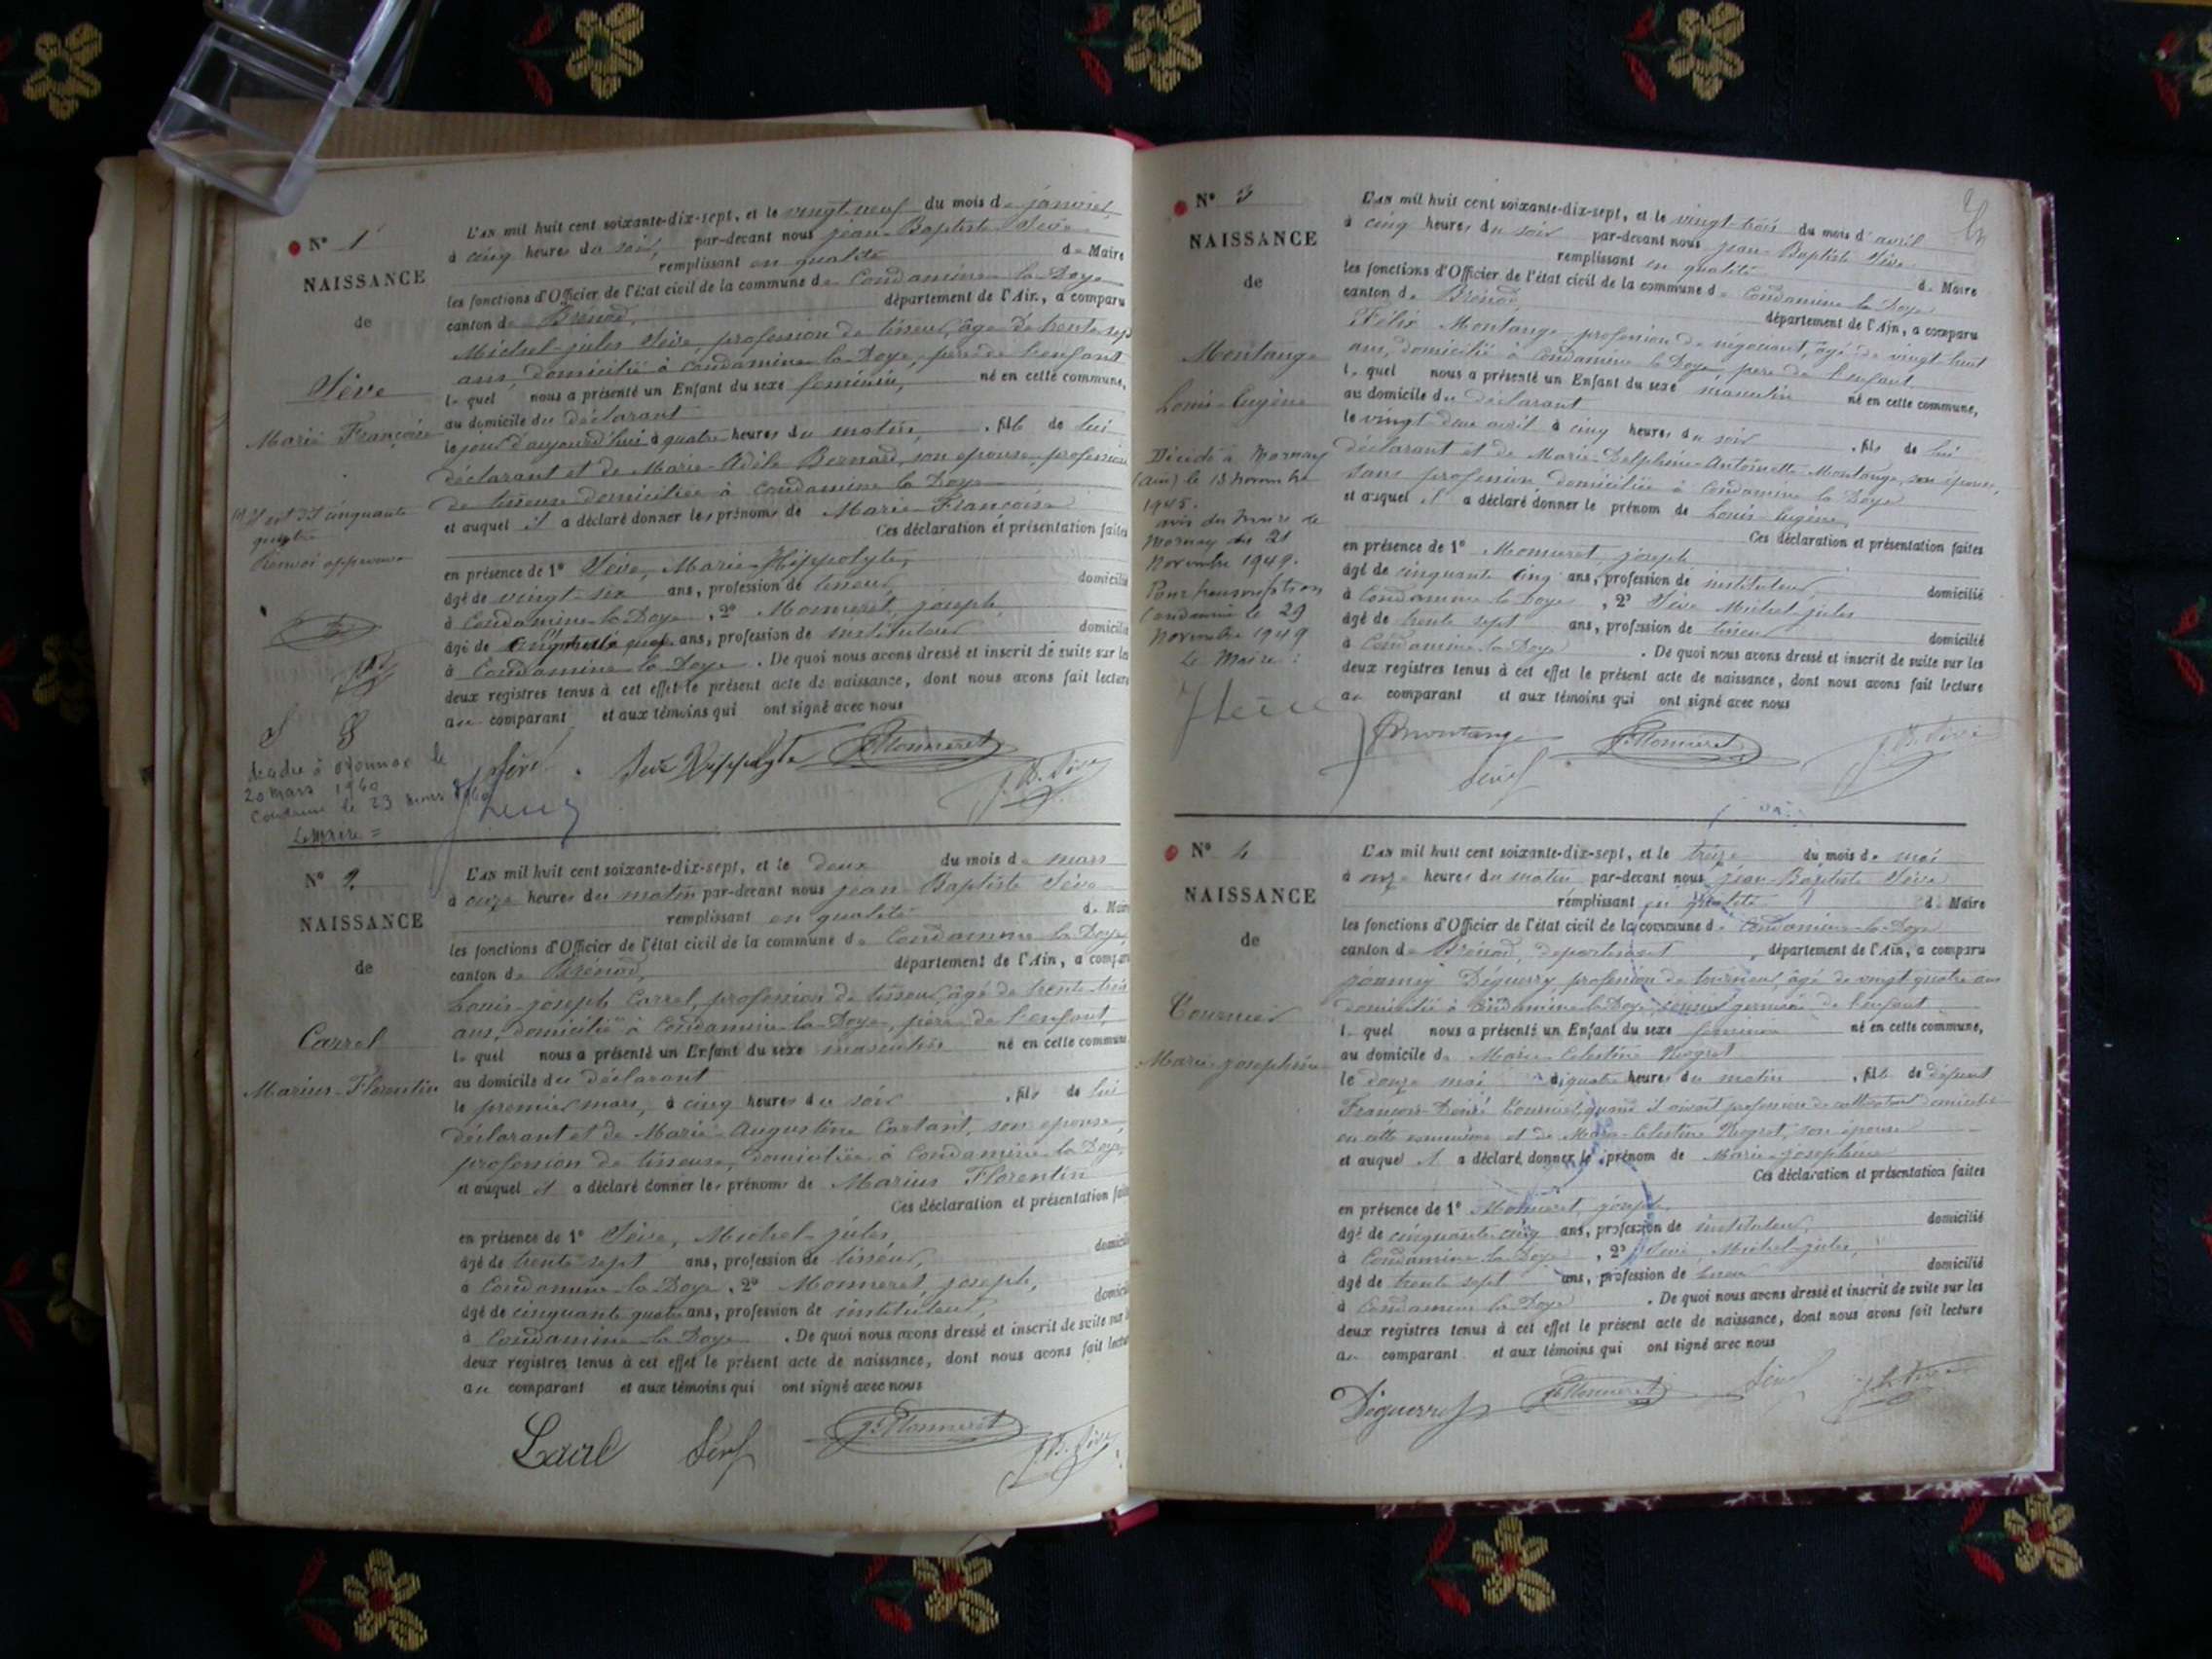 N° 1
NAISSANCE
de
Sève
Marie Françoise
(1) Il est dit cinquante
quatre
Renvoi approuvé
décédée à Oyonnax le
20 mars 1960
Condamine le 23 mars 1960
Le Maire =
L'an mil huit cent soixante-dix-sept, et le vingt-neuf du mois de janvier
à cinq heures du soir, par-devant nous jean-Baptiste Sève
remplissant en qualité de Maire
les fonctions d'Officier de l'état civil de la commune de Condamine la Doye
canton de Brénod, département de l'Ain, a comparu
Michel-jules Sève, profession de tisseur, âgé de trente sept
ans, domicilié à Condamine la Doye, père de l'enfant
lequel nous a présenté un Enfant du sexe féminin, né en cette commune,
au domicile du déclarant
le jour d'aujourd'hui à quatre heures du matin, fille de lui
déclarant et de Marie-Adèle Bernard, son épouse, profession
de tisseuse domiciliée à Condamine la Doye
et auquel il a déclaré donner les prénoms de Marie Françoise
Ces déclaration et présentation faites
en présence de 1° Sève, Marie-Hippolyte,
âgé de vingt-six ans, profession de tisseur, domicilié
à Condamine la Doye, 2° Monneret, joseph,
âgé de ans, profession de instituteur domicilié
à Condamine la Doye. De quoi nous avons dressé et inscrit de suite sur les
deux registres tenus à cet effet le présent acte de naissance, dont nous avons fait lecture
au comparant et aux témoins qui ont signé avec nous
Sève Sève Hippolyte J. Monneret
J. B. Sève
N° 2
NAISSANCE
de
Carrel
Marius-Florentin
L'an mil huit cent soixante-dix-sept, et le deux du mois de mars
à onze heures du matin par-devant nous jean-Baptiste Sève
remplissant en qualité de Maire
les fonctions d'Officier de l'état civil de la commune de Condamine la Doye,
canton de Brénod, département de l'Ain, a comparu
Louis-joseph Carrel, profession de tisseur, âgé de trente-trois
ans, domicilié à Condamine la Doye, père de l'enfant,
lequel nous a présenté un Enfant du sexe masculin né en cette commune
au domicile du déclarant
le premier mars, à cinq heures du soir, fils de lui
déclarant et de Marie-Augustine son épouse,
profession de tisseuse, domiciliée à Condamine la Doye,
et auquel il a déclaré donner les prénoms de Marius Florentin
Ces déclaration et présentation faites
en présence de 1° Sève, Michel-jules,
âgé de trente sept ans, profession de tisseur, domicilié
à Condamine la Doye, 2° Monneret, joseph,
âgé de cinquante quatre ans, profession de instituteur, domicilié
à Condamine la Doye. De quoi nous avons dressé et inscrit de suite sur les
deux registres tenus à cet effet le présent acte de naissance, dont nous avons fait lecture
au comparant et aux témoins qui ont signé avec nous
Sève J. Monneret J. B. Sève
N° 3
NAISSANCE
de
Montange
Louis-Eugène
Décédé à Mornay
(Ain) le 18 novembre
1945.
avis du Maire de
Mornay du 21
Novembre 1949.
Pour transcription
Condamine le 29
Novembre 1949
Le Maire :
L'an mil huit cent soixante-dix-sept, et le vingt-trois du mois d'avril
à cinq heures du soir par-devant nous jean-Baptiste Sève
remplissant en qualité de Maire
les fonctions d'Officier de l'état civil de la commune de Condamine la Doye
canton de Brénod, département de l'Ain, a comparu
Félix Montange profession de négociant, âgé de vingt-huit
ans, domicilié à Condamine la Doye père de l'enfant
lequel nous a présenté un Enfant du sexe masculin né en cette commune,
au domicile du déclarant
le vingt-deux avril à cinq heures du soir, fils de lui
déclarant et de Marie-Delphine-Antoinette Montange, son épouse,
sans profession domiciliée à Condamine la Doye
et auquel il a déclaré donner le prénom de Louis-Eugène
Ces déclaration et présentation faites
en présence de 1° Monneret joseph
âgé de cinquante cinq ans, profession de instituteur, domicilié
à Condamine la Doye, 2° Sève Michel jules
âgé de trente sept ans, profession de tisseur domicilié
à Condamine la Doye. De quoi nous avons dressé et inscrit de suite sur les
deux registres tenus à cet effet le présent acte de naissance, dont nous avons fait lecture
au comparant et aux témoins qui ont signé avec nous
Montange J. Monneret J. B. Sève
Sève
N° 4
NAISSANCE
de
Tournier
Marie-josephine
L'an mil huit cent soixante-dix-sept, et le treize du mois de mai
à onze heures du matin par-devant nous jean-Baptiste Sève
remplissant en qualité de Maire
les fonctions d'Officier de l'état civil de la commune de Condamine-la-Doye
canton de Brénod, département, département de l'Ain, a comparu
joanny Déguerry, profession de tourneur, âgé de vingt quatre ans
domicilié à Condamine la Doye cousin germain de l'enfant
lequel nous a présenté un Enfant du sexe féminin né en cette commune,
au domicile de Marie Célestine
le douze mai à quatre heures du matin, fille de défunt
François-Désiré Tournier, quand il vivait profession de cultivateur domicilié
en cette commune et de Marie-Célestine son épouse
et auquel il a déclaré donner le prénom de Marie-josephine
Ces déclaration et présentation faites
en présence de 1° Monneret, joseph
âgé de cinquante-cinq ans, profession de instituteur, domicilié
à Condamine la Doye, 2° Sève, Michel-jules,
âgé de trente sept ans, profession de tisseur domicilié
à Condamine la Doye. De quoi nous avons dressé et inscrit de suite sur les
deux registres tenus à cet effet le présent acte de naissance, dont nous avons fait lecture
au comparant et aux témoins qui ont signé avec nous
Déguerry J. Monneret Sève J. B. Sève